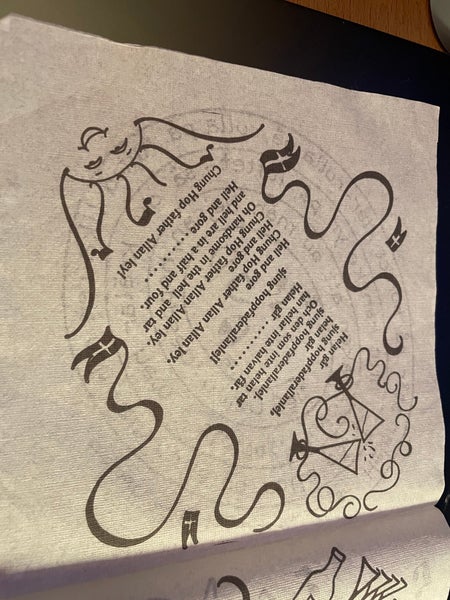 Helan går
sjung hoppfaderallanlej,
Helan går
sjung hoppfaderallanlej.
Och den som inte helan tar
han heller inte halvan får.
Helan går . . . . . . . . .
sjung hoppfaderallanlej!
Hell and gore
Chung Hop father Allan Allan ley,
Hell and gore
Chung Hop father Allan Allan ley.
Oh handsome in the hell and tar
and hell are in a half and four.
Hell and gore . . . . . . . . .
Chung Hop father Allan ley!